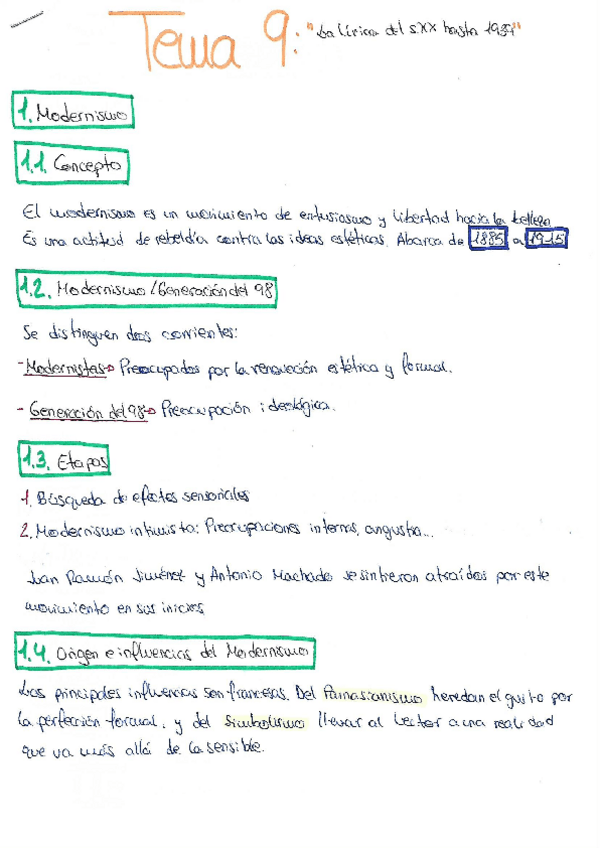 Tema 9: "La lírica del s.XX hasta 1939"
1. Modernismo
1.1. Concepto
El modernismo es un movimiento de entusiasmo y libertad hacia la belleza
Es una actitud de rebeldía contra las ideas estéticas. Abarca de 1885 a 1915
1.2. Modernismo / Generación del 98
Se distinguen dos corrientes:
- Modernistas → Preocupados por la renovación estética y formal.
- Generación del 98 → Preocupación ideológica.
1.3. Etapas
1. Búsqueda de efectos sensoriales
2. Modernismo intimista: Preocupaciones internas, angustia...
Juan Ramón Jiménez y Antonio Machado se sintieron atraídos por este
movimiento en sus inicios
1.4. Origen e influencias del Modernismo
Las principales influencias son francesas. Del Parnasianismo heredan el gusto por
la perfección formal, y del simbolismo llevar al lector a una realidad
que va más allá de lo sensible.